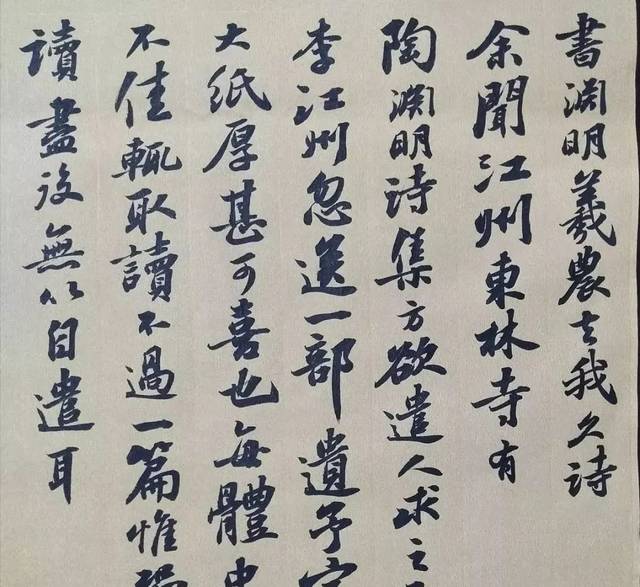 書淵明羲農去我久詩
余聞江州東林寺有
陶淵明詩集方欲遣人求之
李江州忽送一部遺予
大紙厚甚可喜也每體
不佳輒取讀不過一篇惟
讀盡後無以自遣耳